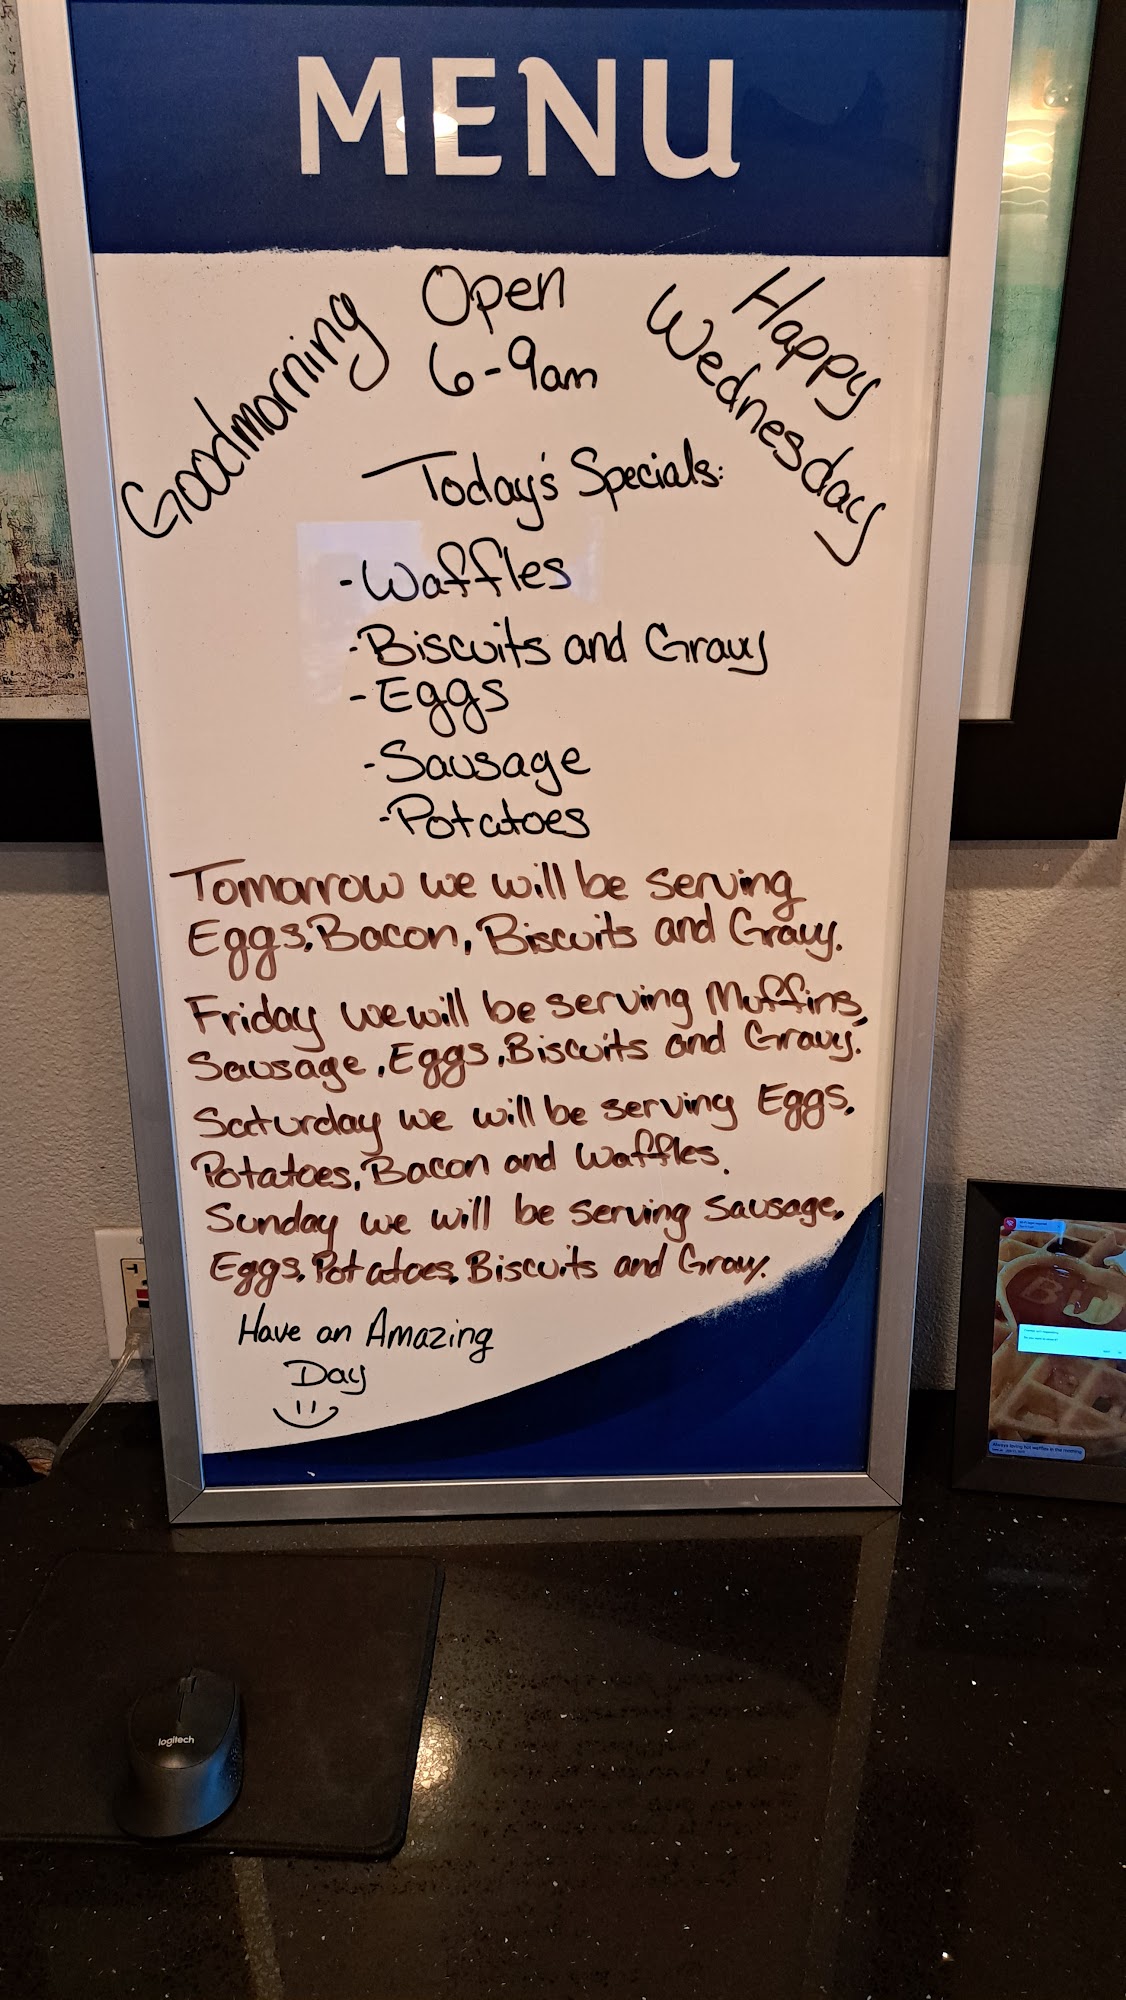 MENU
Goodmorning
Open
6-9am
Happy
Wednesday
Today's Specials:
-Waffles
-Biscuits and Gravy
-Eggs
-Sausage
-Potatoes
Tomorrow we will be serving
Eggs, Bacon, Biscuits and Gravy.
Friday we will be serving Muffins,
Sausage, Eggs, Biscuits and Gravy.
Saturday we will be serving Eggs,
Potatoes, Bacon and Waffles.
Sunday we will be serving Sausage,
Eggs, Potatoes, Biscuits and Gravy.
Have an Amazing
Day
logitech